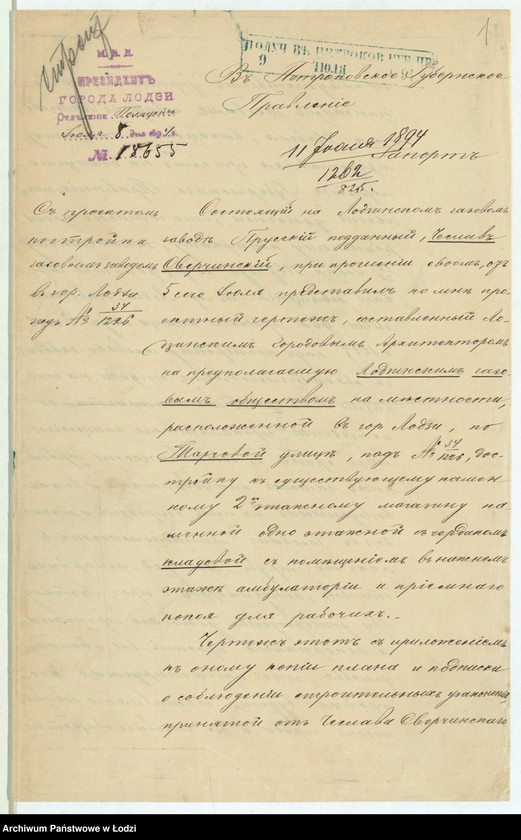 строит
1
М. В. Д.
ПРЕЗИДЕНТЪ
ГОРОДА ЛОДЗИ
Іюля 8 дня 1894 г.
№ 18655
ПОЛУЧ. ВЪ ПЕТРОКОВ. ГУБ. ПР.
9 ІЮЛЯ 9
Въ Петроковское Губернское
Правленіе
11 Іюля 1894
Рапортъ
1282
825.
Съ проектомъ
постройки
газовымъ заводомъ
въ гор. Лодзи
подъ № 34/1246
Состоящій на Лодзинскомъ газовомъ
заводѣ Прусскій подданный, Чеславъ
Сверчинскій, при прошеніи своемъ, отъ
5 сего Іюля представилъ ко мнѣ про
эктный чертежъ, составленный Ло-
дзинскимъ Городовымъ Архитекторомъ
на предполагаемую Лодзинскимъ газо
вымъ обществомъ на мѣстности,
расположенной въ гор Лодзи, по
Торговой улицѣ, подъ № 34/1246, дос-
тройку къ существующему камен
ному 2хъ этажному магазину ка-
менной одно этажной съ чердакомъ
кладовой съ помѣщеніемъ въ нижнемъ
этажѣ амбулаторіи и пріемнаго
покоя для рабочихъ. –
Чертежъ этотъ съ приложеніемъ
къ оному копіи плана и подписки
о соблюденіи строительныхъ правилъ,
принятой отъ Чеслава Сверчинскаго
Archiwum Państwowe w Łodzi